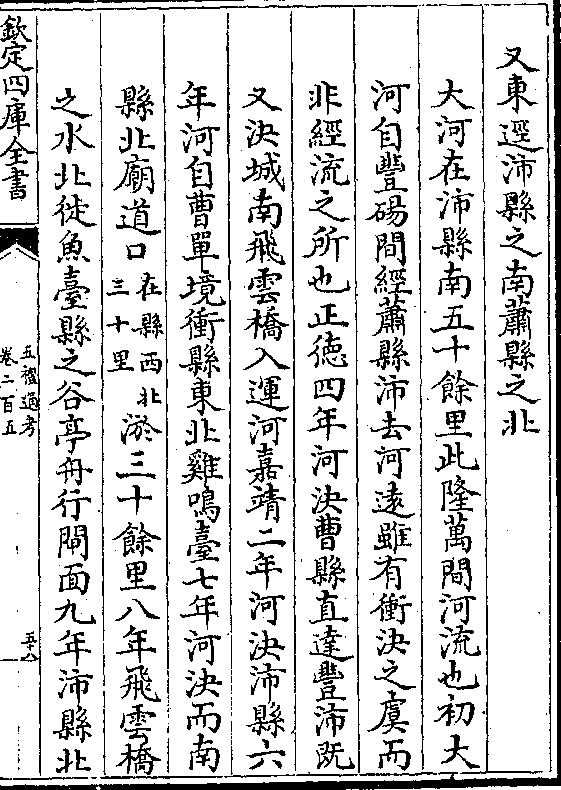 又東逕沛縣之南蕭縣之北
大河在沛縣南五十餘里此隆萬間河流也初大
河自豐碭間經蕭縣沛去河遠雖有衝決之虞而
非經流之所也正德四年河決曹縣直達豐沛既
又決城南飛雲橋入運河嘉靖二年河決沛縣六
年河自曹單境衝縣東北雞鳴臺七年河決而南
縣北廟道口在縣西北三十里淤三十餘里八年飛雲橋
之水北徙魚臺縣之谷亭舟行閘面九年沛縣北
欽定四庫全書
五禮通考
卷二百五
五十八